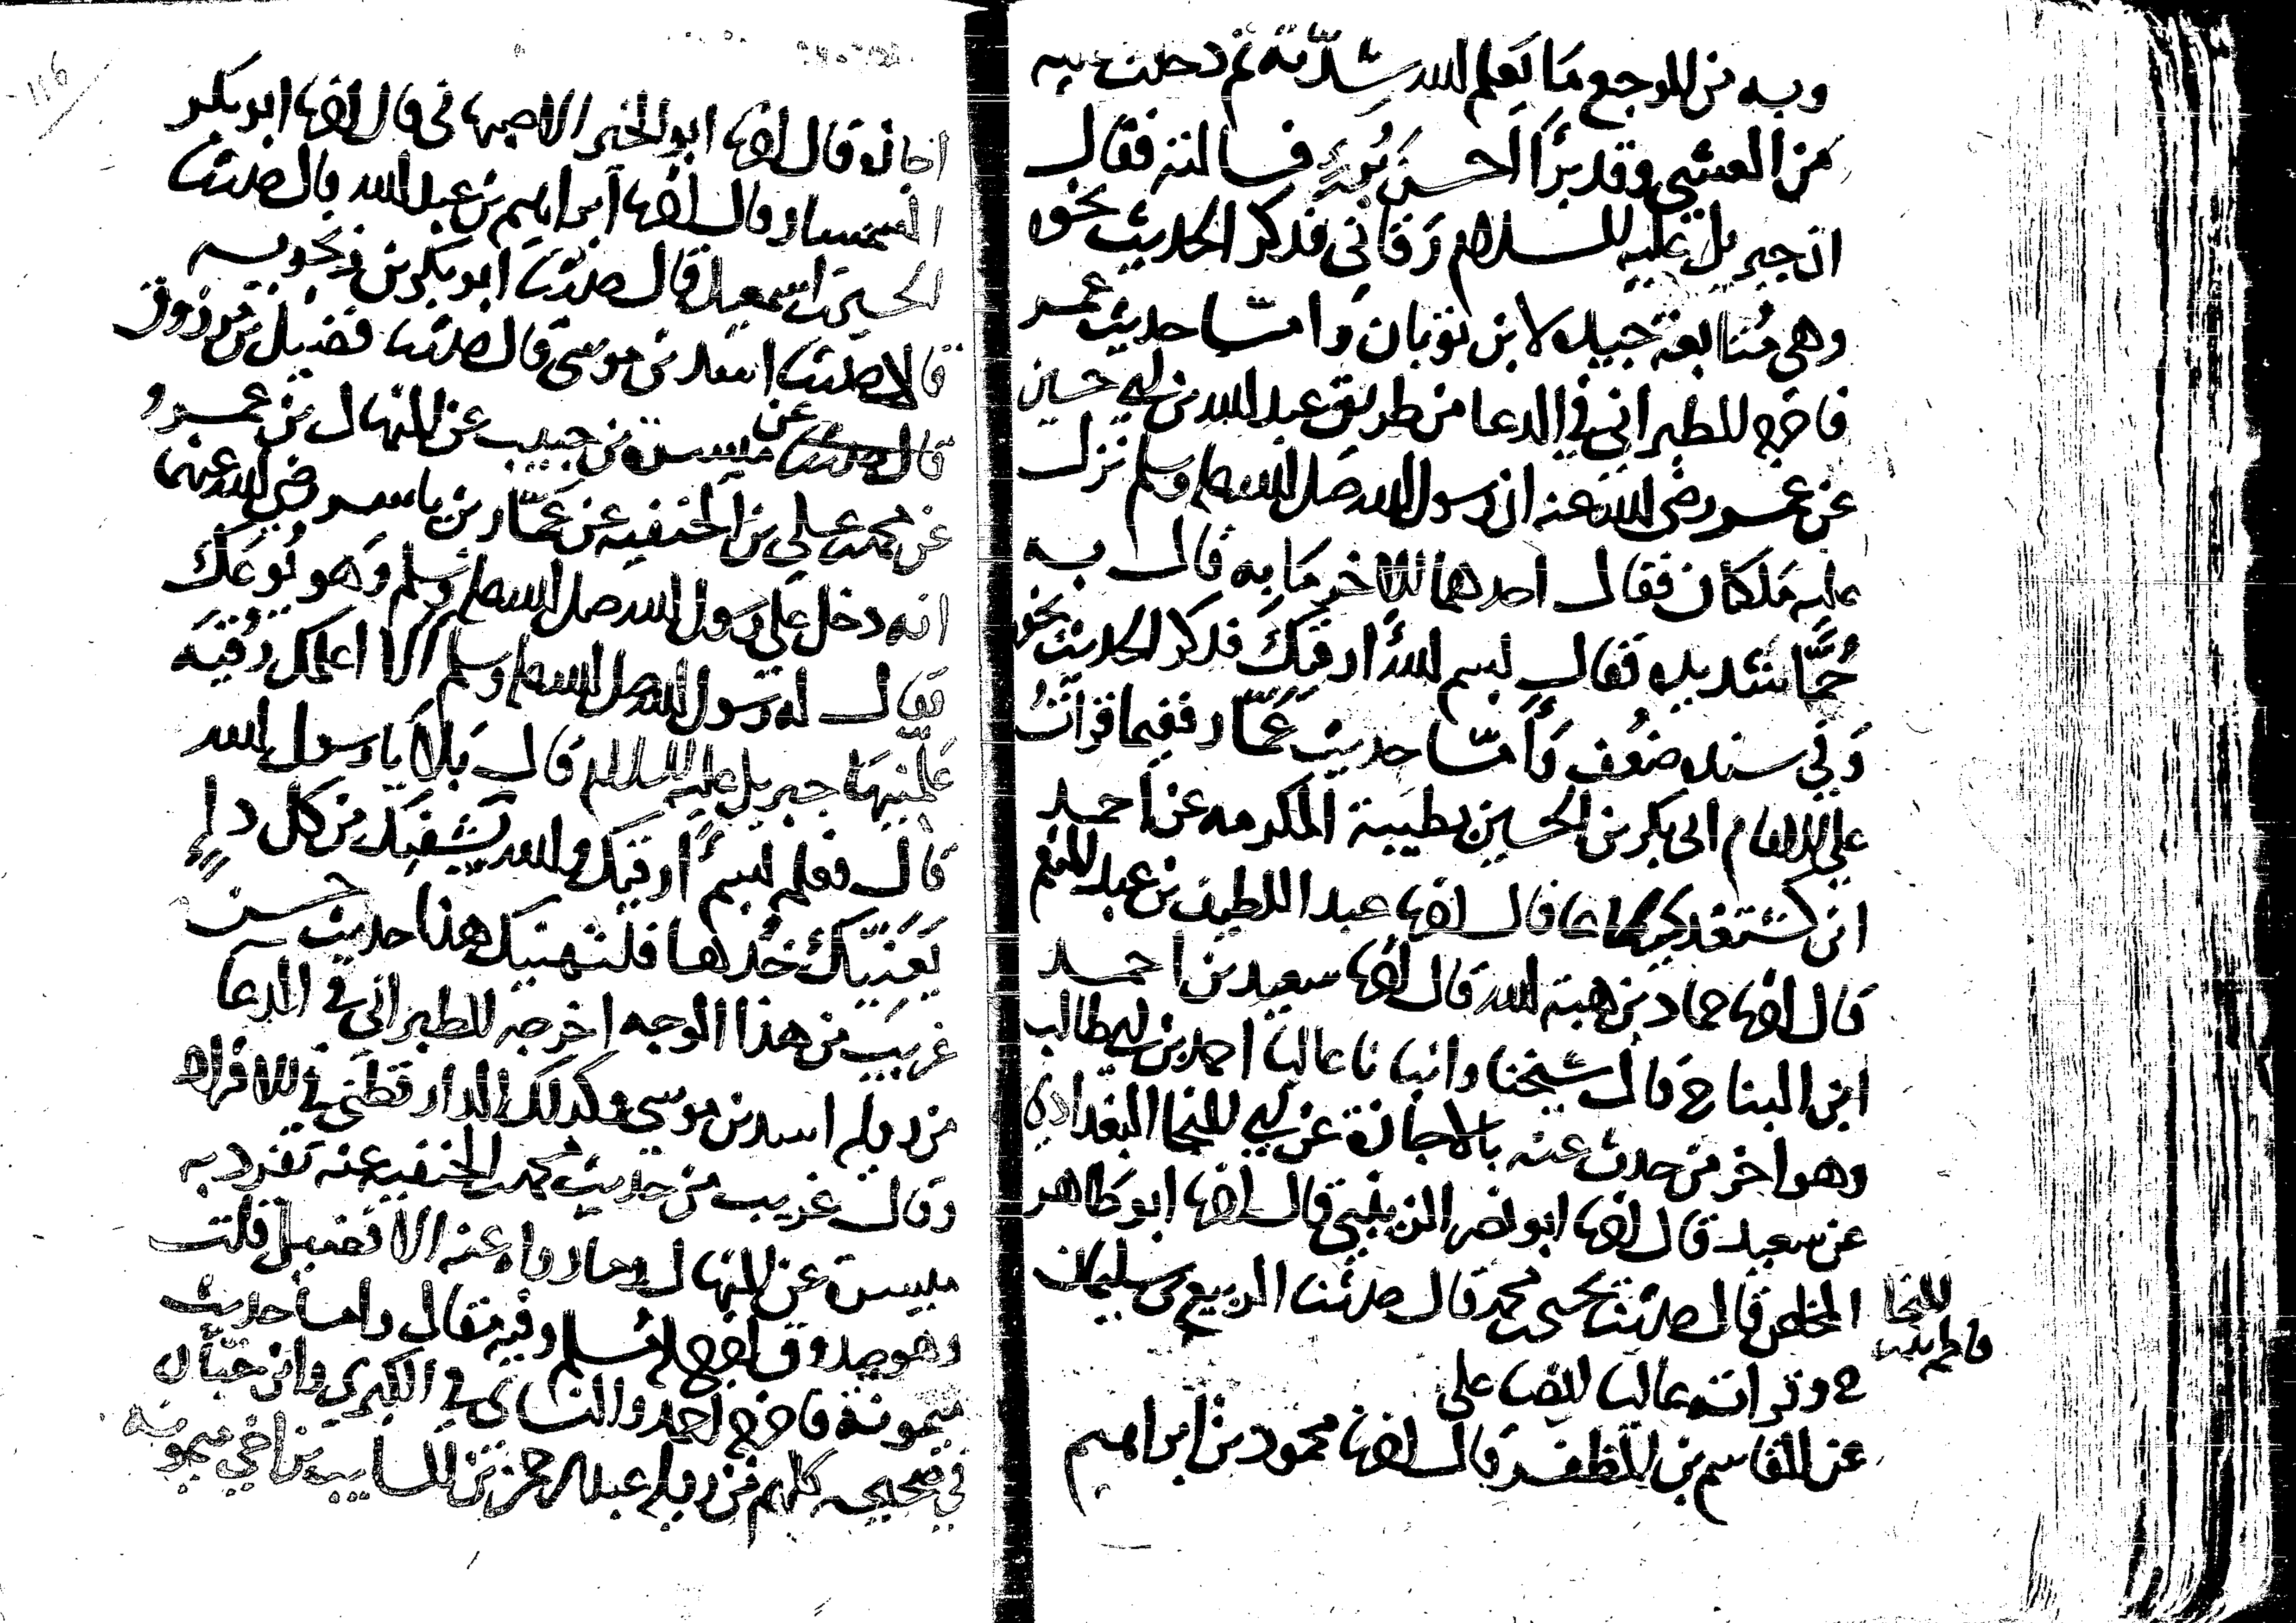 وبه من الوجع ما يعلم الله شدته ثم دخلت عليه
من العشي وقد برأ أحسن برء فسألته فقال
ان جبريل عليه السلام رقاني فذكر الحديث نحوه
وهي متابعة جيدة لابن ثوبان وأما حديث عمر
فاخرجه الطبراني في الدعا من طريق عبد الله بن ابي حسين
عن عمر رضي الله عنه ان رسول الله صلى الله عليه وسلم نزل
عليه ملكان فقال احدهما للآخر ما به قال به
حمّا شديده فقال بسم الله أرقيك فذكر الحديث نحوه
وفي سنده ضعف وأما حديث عمّار ففيما قرأتُ
على الامام ابى بكر بن الحسين بطيبة المكرمه عن أحمد
ابن كشتغدي سماعا قال اخبرنا عبد اللطيف بن عبد المنعم
قال اخبرنا حماد بن هبة الله قال اخبرنا سعيد بن احمد
ابن البنا ح قال شيخنا وانبانا عاليا احمد بن ابي طالب
وهو اخر من حدث عنه بالاجازة عن ابي المنجا البغدادي
عن سعيد قال اخبرنا ابو نصر الزينبي قال اخبرنا ابو طاهر
المخلص قال حدثنا يحيى بن محمد قال حدثنا الربيع بن سليمان
ح وقرأته عاليا ايضا على
عن القاسم بن المظفر قال اخبرنا محمود بن ابراهيم
المنجا
فاطمة بنت
اجازة قال اخبرنا ابو الخير الاصبهاني قال اخبرنا ابو بكر
السمسار قال اخبرنا ابراهيم بن عبد الله قال حدثنا
الحسين بن اسمعيل قال حدثنا ابو بكر بن زنجويه
قالا حدثنا اسد بن موسى قال حدثنا فضيل بن مرزوق
قال حدثنا عن ميسرة بن حبيب عن المنهال بن عمرو
عن محمد بن علي بن الحنفيه عن عمّار بن ياسر رضي الله عنهما
انه دخل على رسول الله صلى الله عليه وسلم وهو يوعك
فقال له رسول الله صلى الله عليه وسلم ألا اعلمك رقيه
علمنيها جبريل عليه السلام قال بلا يا رسول الله
قال فعلمه بسم أرقيك والله يشفيك من كل داء
يعنيك خُذها فلتهنيك هذا حديث حسن
غريب من هذا الوجه اخرجه الطبراني في الدعا
من رواية اسد بن موسى وكذلك الدارقطني في الافراد
وقال غريب من حديث محمد بن الحنفيه عنه تفرد به
ميسرة عن المنهال وما رواه عنه الا فضيل قلت
وهو صدوق اخرج له مسلم وفيه مقال واما حديث
ميمونة فاخرجه أحمد والنسائي في الكبرى وابن حبّان
في صحيحه كلهم من رواية عبد الرحمن بن السايب بن اخي ميمونه